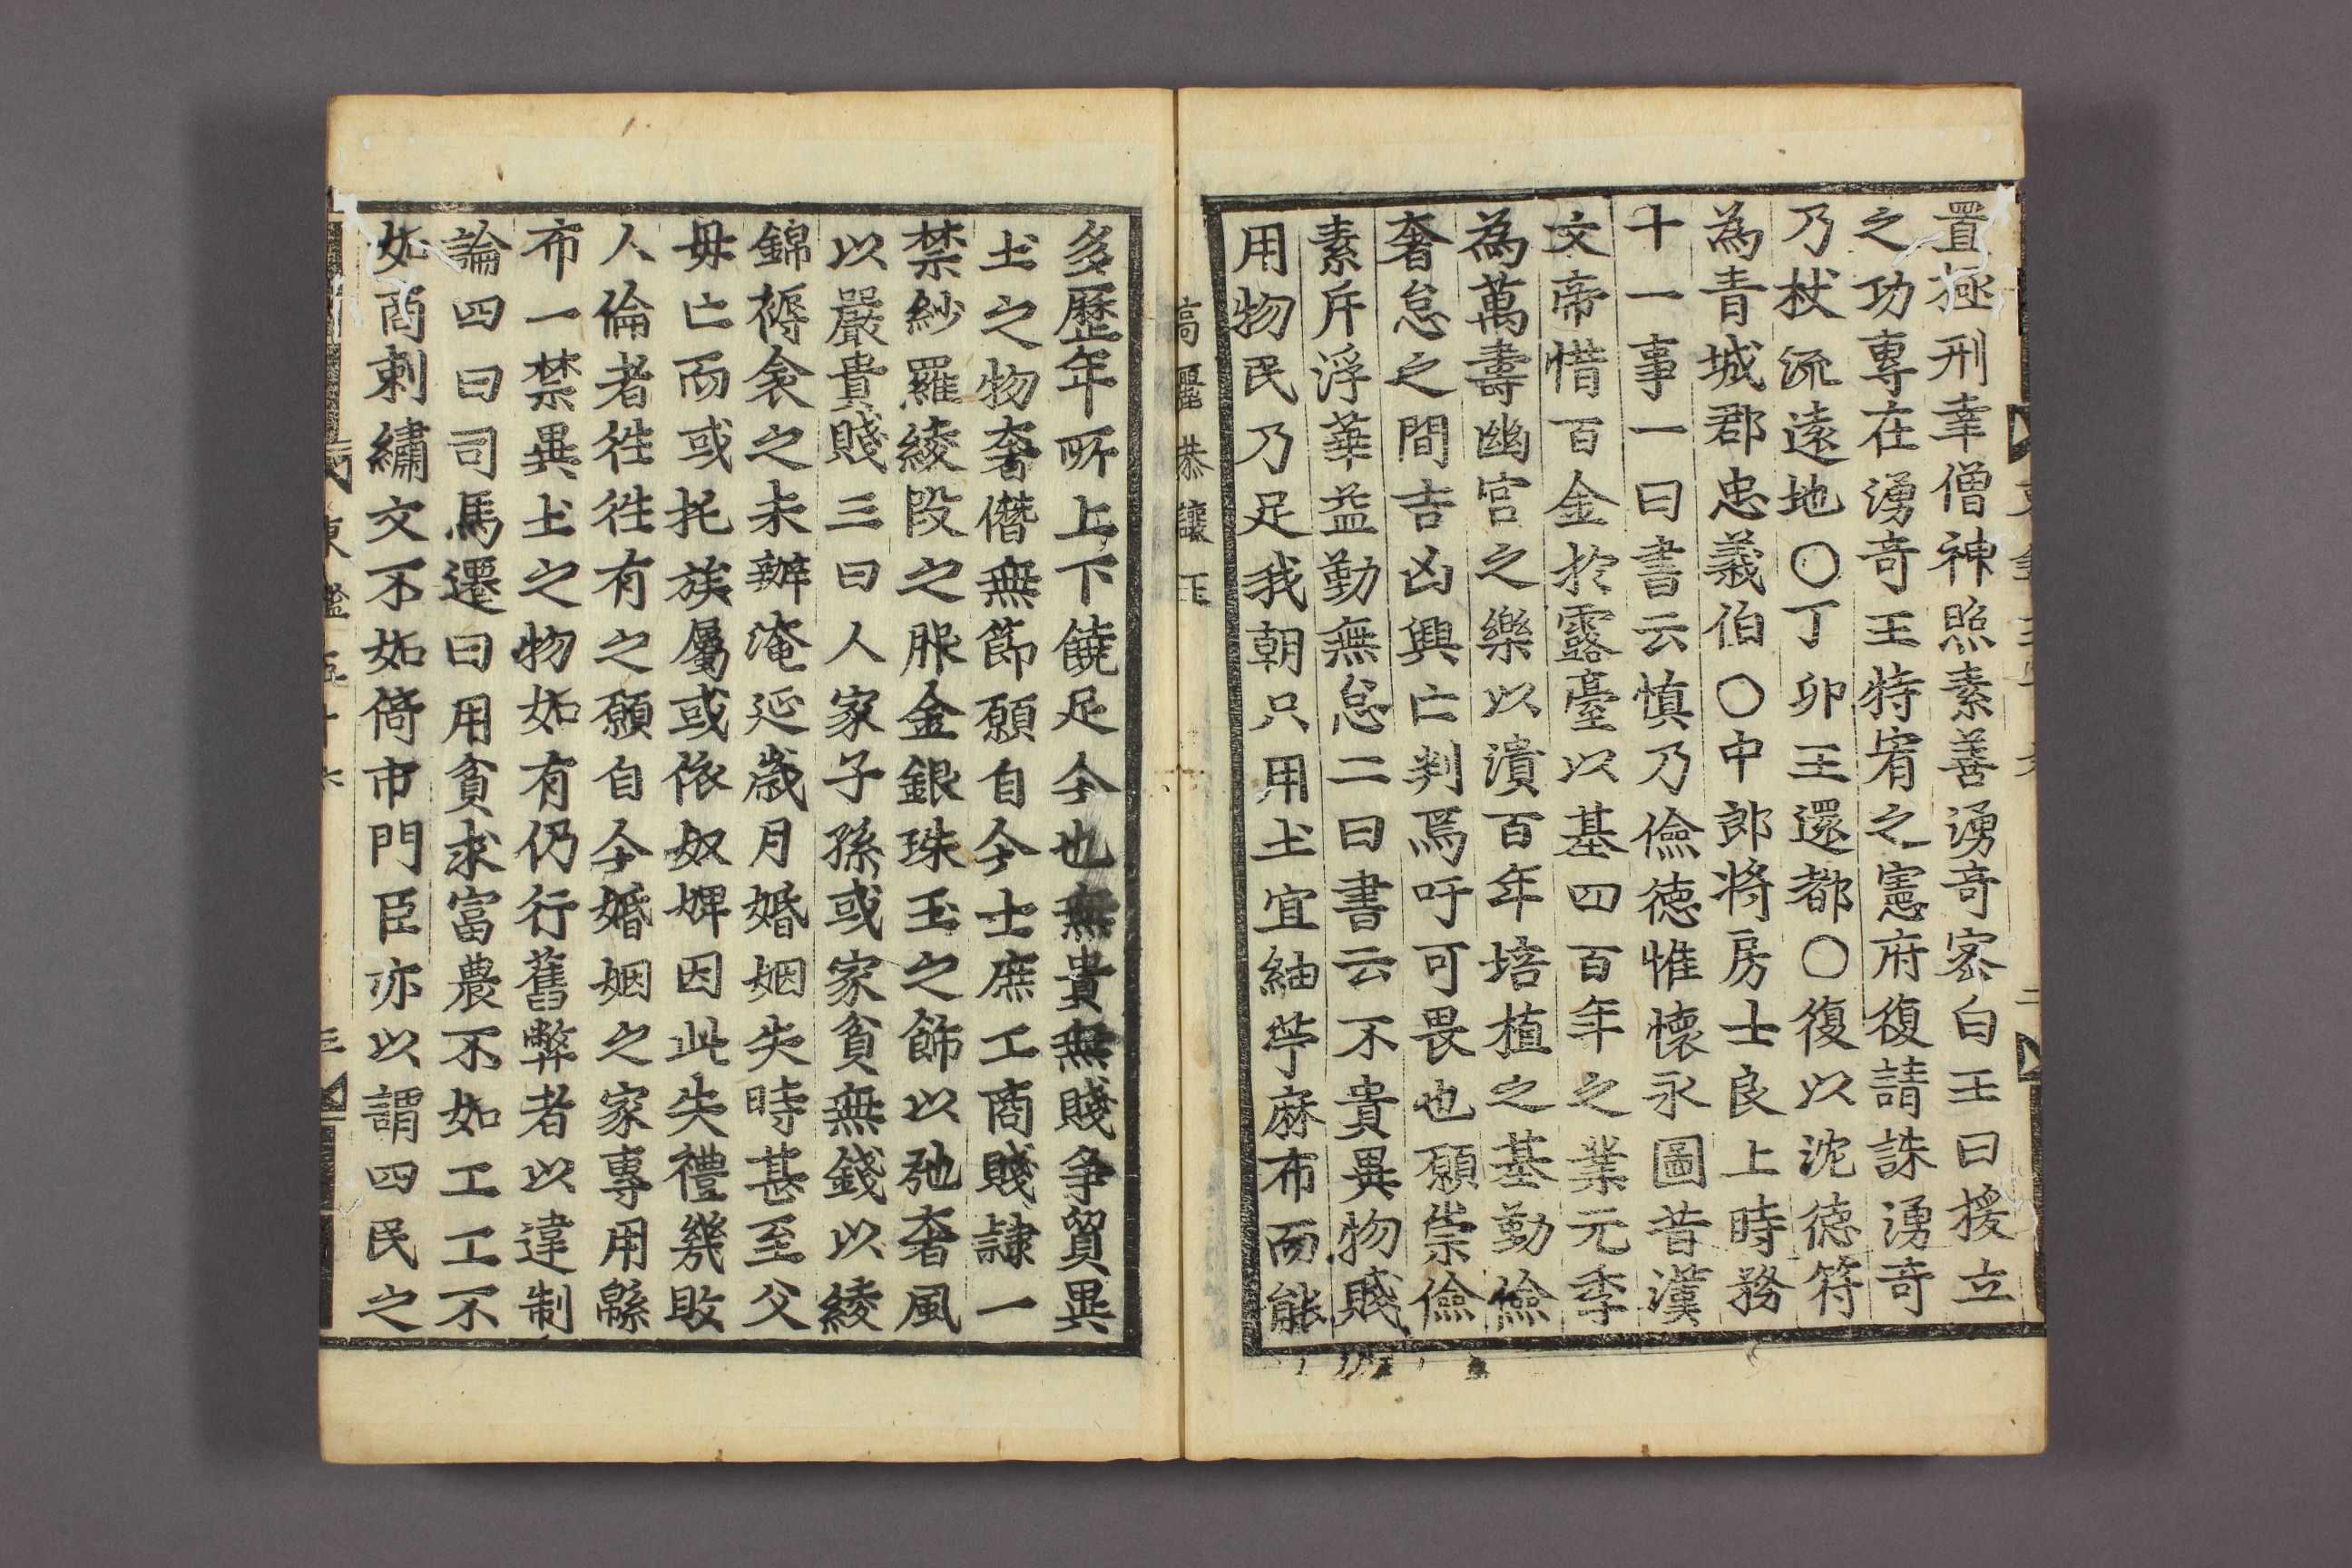 置極刑幸僧神照素善湧竒密白王曰援立
之功專在湧竒王特宥之憲府復請誅湧竒
乃杖流遠地〇丁卯王還都〇復以沈德符
為青城郡忠義伯〇中郎將房士良上時務
十一事一曰書云慎乃儉德惟懷永圖昔漢
文帝惜百金於露臺以基四百年之業元季
為萬壽幽宮之樂以潰百年培植之基勤儉
奢怠之間吉凶興亡判焉吁可畏也願崇儉
素斥浮華益勤無怠二曰書云不貴異物賤
用物民乃足我朝只用土宜紬苧麻布而能
高麗恭讓王
多歷年所上下饒足今也無貴無賤争貿異
土之物奢僭無節願自今士庶工商賤隷一
禁紗羅綾段之服金銀珠玉之飾以弛奢風
以嚴貴賤三曰人家子孫或家貧無錢以綾
錦褥衾之未辦淹延歲月婚姻失時甚至父
母亡而或托族屬或依奴婢因此失禮幾敗
人倫者徃徃有之願自今婚姻之家專用緜
布一禁異土之物如有仍行舊弊者以違制
論四曰司馬遷曰用貧求富農不如工工不
如商刺繡文不如倚市門臣亦以謂四民之
東鑑五十六
三